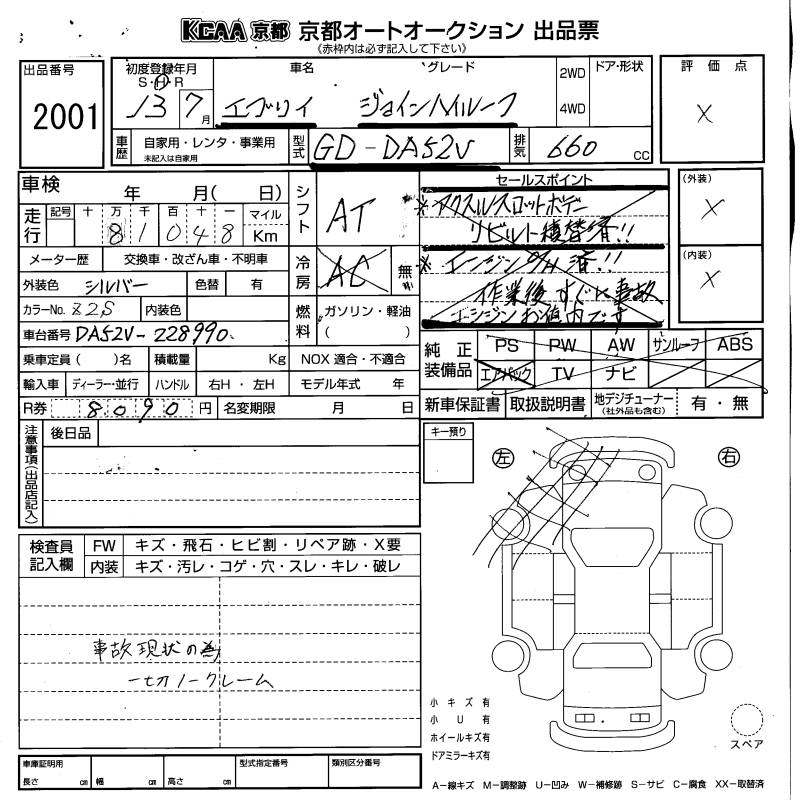 KCAA 京都 京都オートオークション 出品票
《赤枠内は必ず記入して下さい》
出品番号
2001
初度登録年月
S・H・R
13 7月
車名 グレード
エブリイ ジョインハイルーフ
2WD
4WD
ドア・形状
評価点
X
車歴
自家用・レンタ・事業用
未記入は自家用
型式
GD-DA52V
排気
660 cc
車検 年 月( 日)
シフト
AT
セールスポイント
※アクスルスロットボデー
リビルト積替済!!
※エンジンO/H済!!
作業後すぐに事故
エンジンお値内です
(外装)
X
(内装)
X
走行
記号 十 万 千 百 十 一 マイル
8 1 0 4 8 Km
メーター歴 交換車・改ざん車・不明車
冷房
AC
無
外装色 シルバー 色替 有
カラーNo. Z2S 内装色
燃料
ガソリン・軽油
( )
車台番号 DA52V-228990
乗車定員( )名 積載量 Kg NOX 適合・不適合
輸入車 ディーラー・並行 ハンドル 右H・左H モデル年式 年
R券 8090 円 名変期限 月 日
純正装備品
PS PW AW サンルーフ ABS
エアバック TV ナビ
新車保証書 取扱説明書 地デジチューナー(社外品も含む) 有・無
注意事項(出品店記入)
後日品
キー預り
左
右
検査員記入欄
FW キズ・飛石・ヒビ割・リペア跡・X要
内装 キズ・汚レ・コゲ・穴・スレ・キレ・破レ
事故現状の為
一切ノークレーム
小キズ有
小U有
ホイールキズ有
ドアミラーキズ有
スペア
車庫証明用
長さ cm 幅 cm 高さ cm
型式指定番号
類別区分番号
A-線キズ M-調整跡 U-凹み W-補修跡 S-サビ C-腐食 XX-取替済